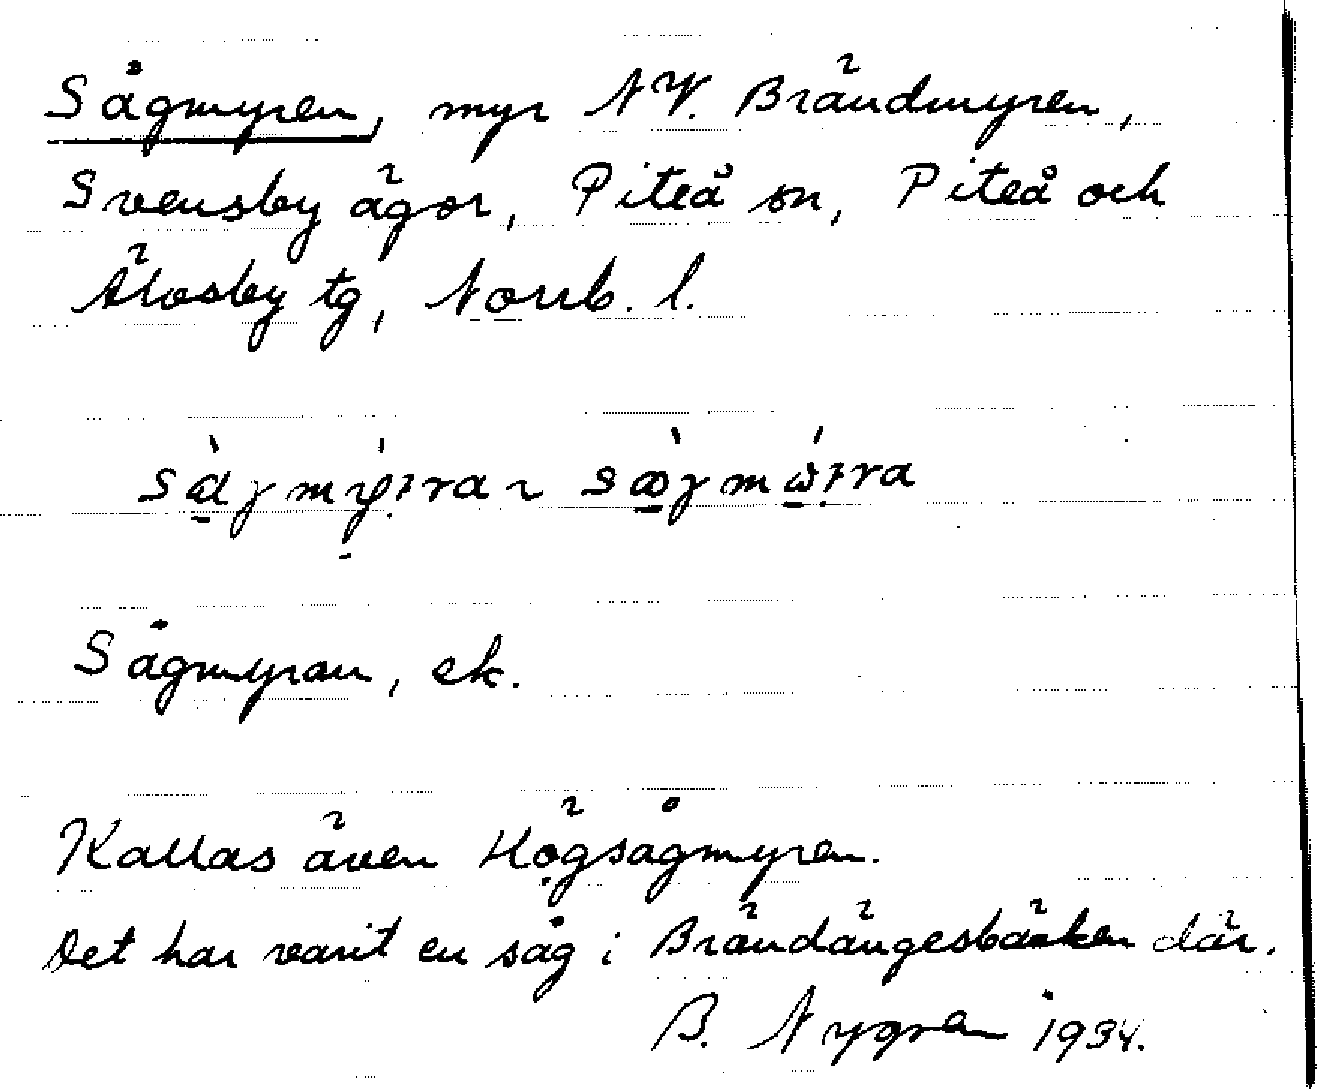 Sågmyren, myr NV. Brändmyren,
Svensby ägor, Piteå sn, Piteå och
Älvsby tg, Norrb. l.
Sågmyran, ek.
Kallas även Högsågmyren.
Det har varit en såg i Brändängesbäcken där.
B. Nygren 1934.